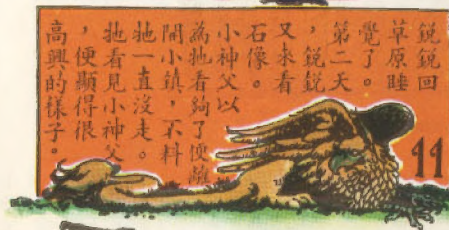 銳銳回
草原睡
覺了。
第二天
，銳銳
又來看
石像。
小神父以
為牠看夠了便離
開小鎮，不料
牠一直沒走。
牠看見小神父
，便顯得很
高興的樣子。
11